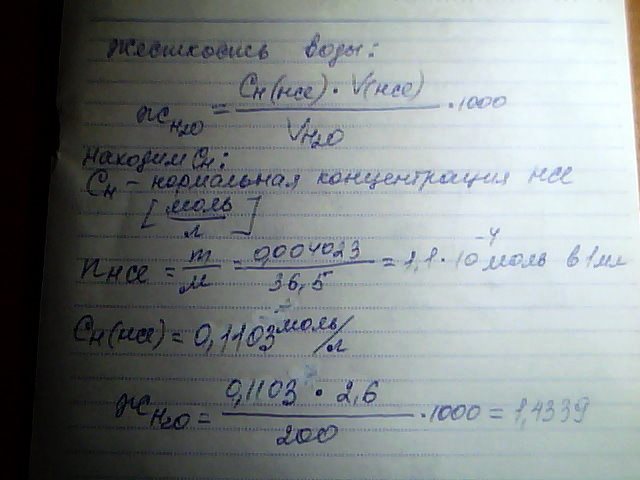 жесткость воды:
Ж H2O = Cн(HCl) · V(HCl) / V H2O · 1000
Находим Cн:
Cн - нормальная концентрация HCl
[моль/л]
n HCl = m/M = 0,004023/36,5 = 1,1·10^-4 моль в 1 мл
Cн(HCl) = 0,1103 моль/л
Ж H2O = 0,1103 · 2,6 / 200 · 1000 = 1,4339